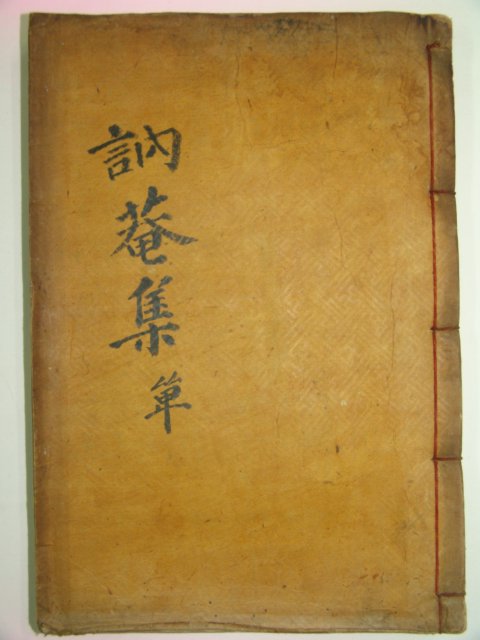 訥菴集單